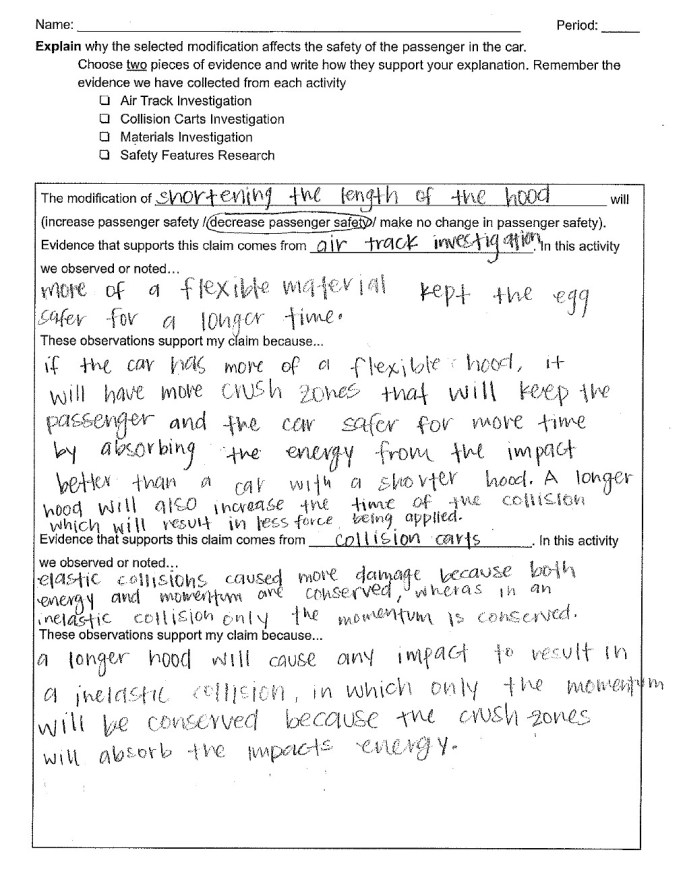 Name: Period:
Explain why the selected modification affects the safety of the passenger in the car.
Choose two pieces of evidence and write how they support your explanation. Remember the
evidence we have collected from each activity
Air Track Investigation
Collision Carts Investigation
Materials Investigation
Safety Features Research
The modification of shortening the length of the hood will
(increase passenger safety / decrease passenger safety / make no change in passenger safety).
Evidence that supports this claim comes from air track investigation. In this activity
we observed or noted...
more of a flexible material kept the egg
safer for a longer time.
These observations support my claim because...
if the car has more of a flexible hood, it
will have more crush zones that will keep the
passenger and the car safer for more time
by absorbing the energy from the impact
better than a car with a shorter hood. A longer
hood will also increase the time of the collision
which will result in less force being applied.
Evidence that supports this claim comes from collision carts. In this activity
we observed or noted...
elastic collisions caused more damage because both
energy and momentum are conserved, wheras in an
inelastic collision only the momentum is conserved.
These observations support my claim because...
a longer hood will cause any impact to result in
a inelastic collision, in which only the momentum
will be conserved because the crush zones
will absorb the impacts energy.